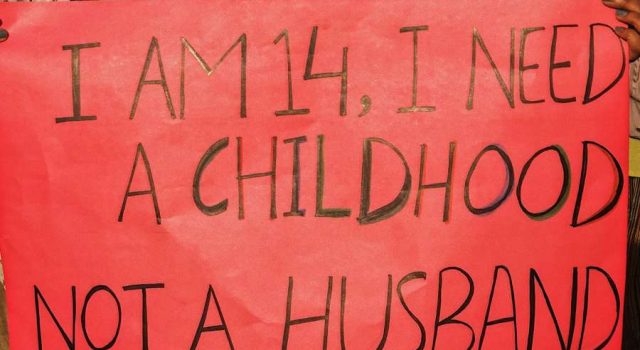 I AM 14, I NEED
A CHILDHOOD
NOT A HUSBAND